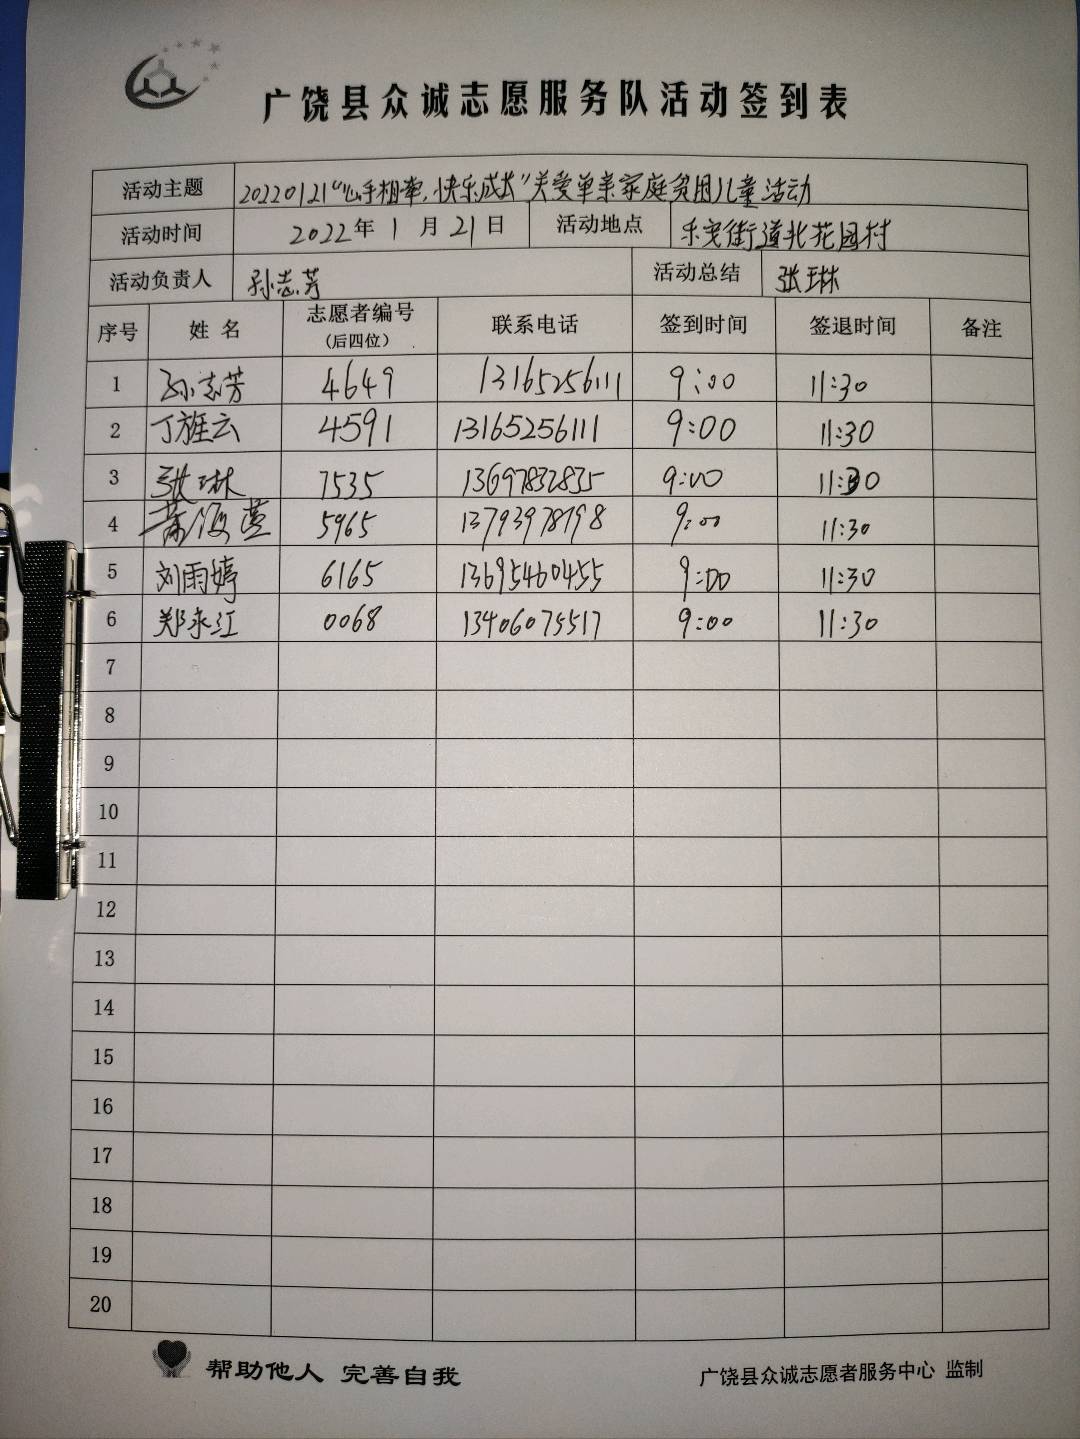 广饶县众诚志愿服务队活动签到表
活动主题 20220121“心手相牵,快乐成长”关爱单亲家庭贫困儿童活动
活动时间 2022年1月21日 活动地点 乐安街道北花园村
活动负责人 孙志芳 活动总结 张琳
序号 姓名 志愿者编号 (后四位) 联系电话 签到时间 签退时间 备注
1 孙志芳 4649 13165256111 9:00 11:30
2 丁旌云 4591 13165256111 9:00 11:30
3 张琳 7535 13697832835 9:00 11:30
4 5965 13793978198 9:00 11:30
5 刘雨婷 6165 13695460455 9:00 11:30
6 郑永江 0068 13406075517 9:00 11:30
7
8
9
10
11
12
13
14
15
16
17
18
19
20
帮助他人 完善自我 广饶县众诚志愿者服务中心 监制